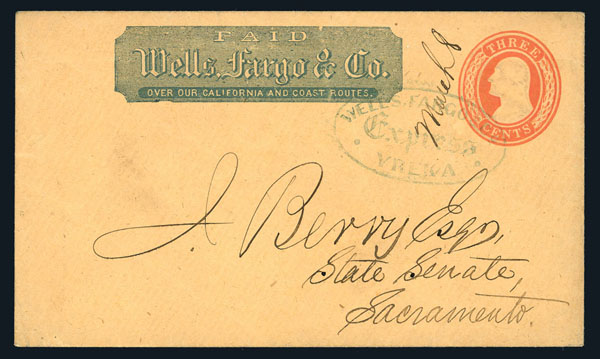 PAID
Wells, Fargo & Co.
OVER OUR CALIFORNIA AND COAST ROUTES.
THREE
CENTS
March 8
WELLS, FARGO
Express
YREKA
J. Berry Esq,
State Senate,
Sacramento.